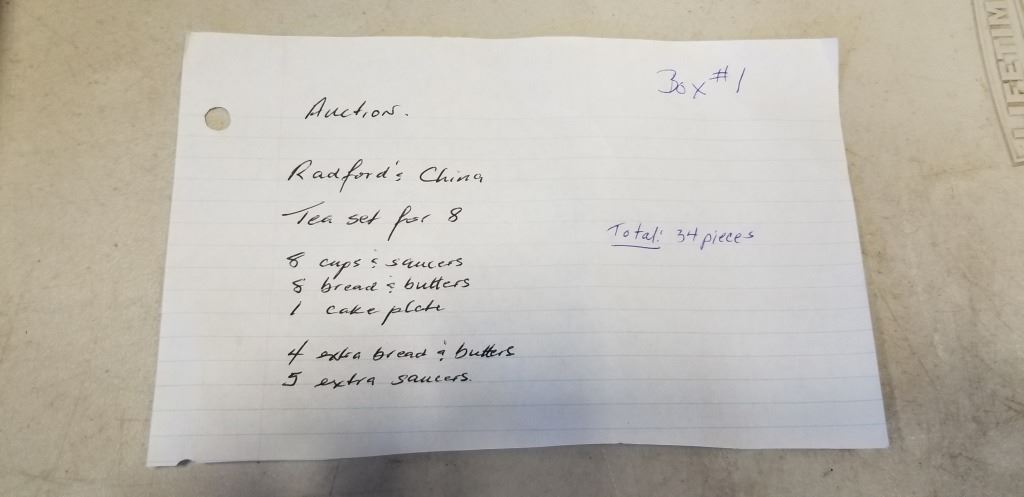 Box #1
Auction.
Radford's China
Tea set for 8
Total: 34 pieces
8 cups & saucers
8 bread & butters
1 cake plate
4 extra bread & butters
5 extra saucers.
LIFETIM